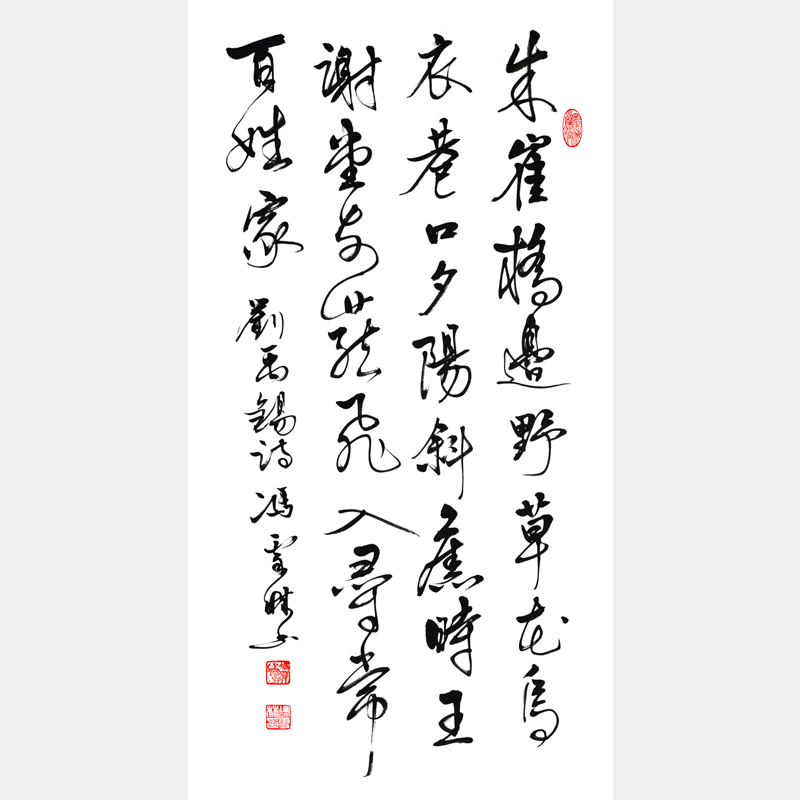 朱雀橋邊野草花烏
衣巷口夕陽斜舊時王
謝堂前燕飛入尋常
百姓家 劉禹錫詩 馮雪林书